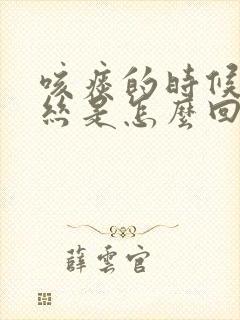 咳痰的時候
絲是怎麼回
薛雲官